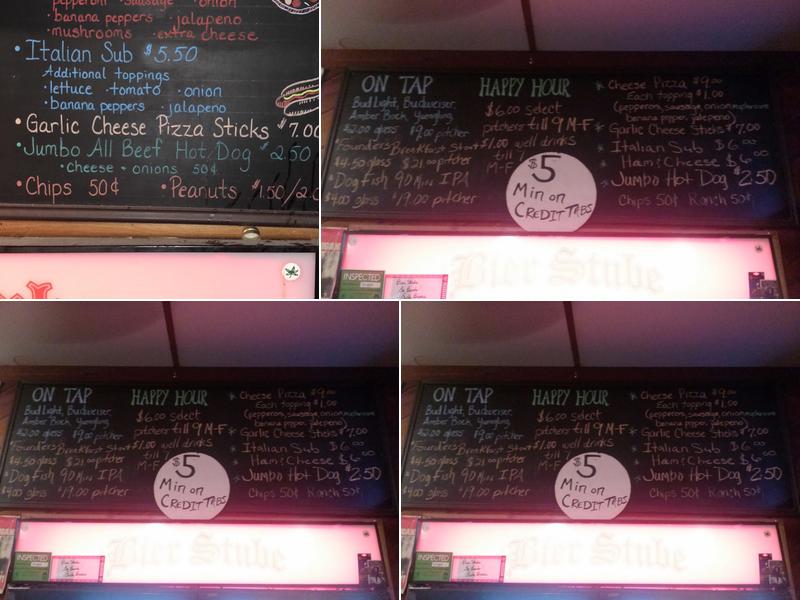 pepperoni ·sausage ·onion
·banana peppers ·jalapeno
·mushrooms ·extra cheese
·Italian Sub $5.50
Additional toppings
·lettuce ·tomato ·onion
·banana peppers ·jalapeno
·Garlic Cheese Pizza Sticks $7.00
·Jumbo All Beef Hot Dog $2.50
·cheese + onions 50¢
·Chips 50¢ ·Peanuts $1.50/2.0
ON TAP
Bud Light, Budweiser,
Amber Bock, Yuengling
$2.00 glass $9.00 pitcher
Founders Breakfast Stout
$4.50 glass $21.00 pitcher
·Dog Fish 90 Min IPA
$4.00 glass $19.00 pitcher
HAPPY HOUR
$6.00 select
pitchers till 9 M-F
$1.00 well drinks
till 7
M-F
$5
Min on
CREDIT TABS
* Cheese Pizza $9.00
Each topping $1.00
(pepperoni, sausage, onion, mushroom
banana pepper, jalepeno)
* Garlic Cheese Sticks $7.00
* Italian Sub $6.00
* Ham & Cheese $6.00
* Jumbo Hot Dog $2.50
Chips 50¢ Ranch 50¢
Bier Stube
INSPECTED
ON TAP
Bud Light, Budweiser,
Amber Bock, Yuengling
$2.00 glass $9.00 pitcher
Founders Breakfast Stout
$4.50 glass $21.00 pitcher
·Dog Fish 90 Min IPA
$4.00 glass $19.00 pitcher
HAPPY HOUR
$6.00 select
pitchers till 9 M-F
$1.00 well drinks
till 7
M-F
$5
Min on
CREDIT TABS
* Cheese Pizza $9.00
Each topping $1.00
(pepperoni, sausage, onion, mushroom
banana pepper, jalepeno)
* Garlic Cheese Sticks $7.00
* Italian Sub $6.00
* Ham & Cheese $6.00
* Jumbo Hot Dog $2.50
Chips 50¢ Ranch 50¢
Bier Stube
INSPECTED
ON TAP
Bud Light, Budweiser,
Amber Bock, Yuengling
$2.00 glass $9.00 pitcher
Founders Breakfast Stout
$4.50 glass $21.00 pitcher
·Dog Fish 90 Min IPA
$4.00 glass $19.00 pitcher
HAPPY HOUR
$6.00 select
pitchers till 9 M-F
$1.00 well drinks
till 7
M-F
$5
Min on
CREDIT TABS
* Cheese Pizza $9.00
Each topping $1.00
(pepperoni, sausage, onion, mushroom
banana pepper, jalepeno)
* Garlic Cheese Sticks $7.00
* Italian Sub $6.00
* Ham & Cheese $6.00
* Jumbo Hot Dog $2.50
Chips 50¢ Ranch 50¢
Bier Stube
INSPECTED